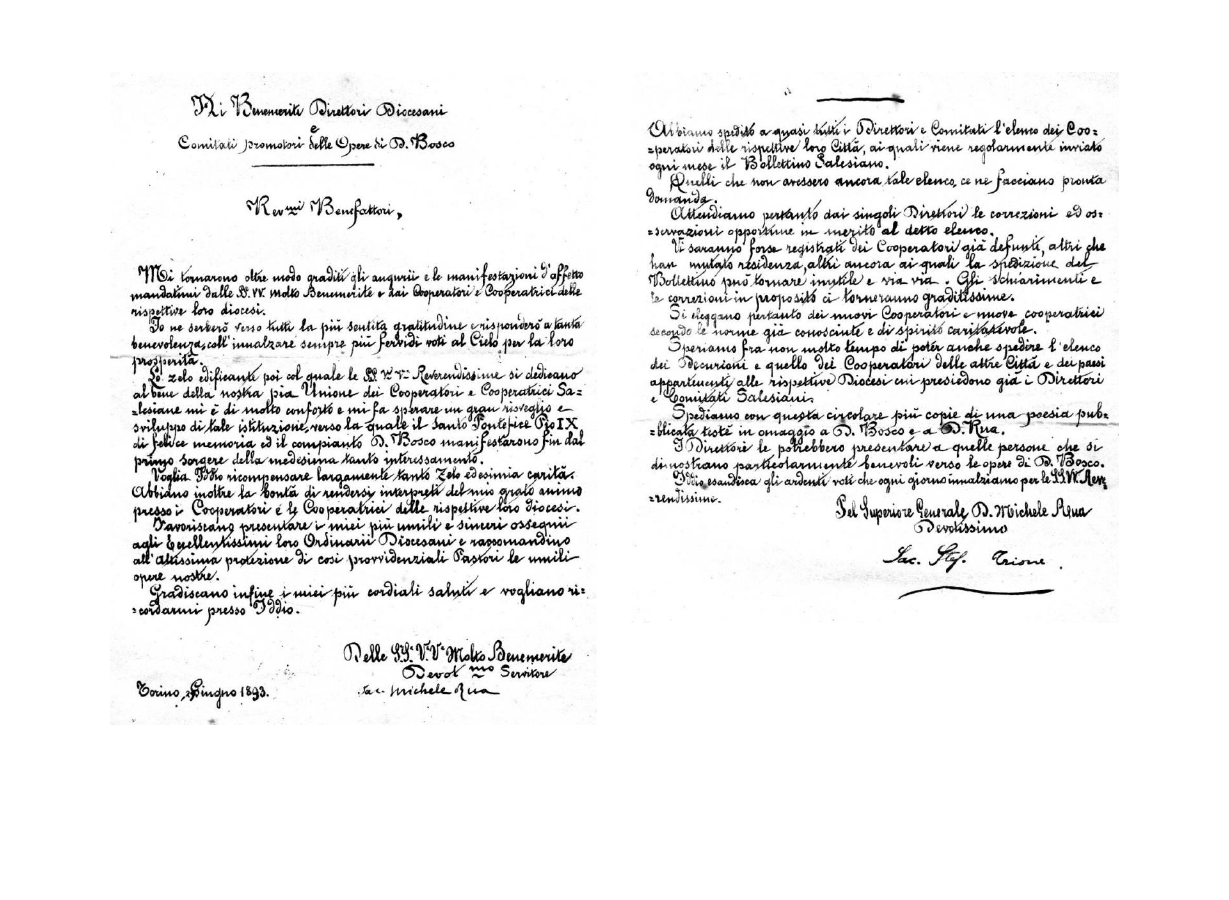 Ai Benemeriti Direttori Diocesani
e
Comitati promotori delle Opere di D. Bosco
Rev.mi Benefattori,
Mi tornarono oltre modo graditi gli augurii e le manifestazioni d'affetto
mandatimi dalle SS. VV. Molto Benemerite e dai Cooperatori e Cooperatrici delle
rispettive loro diocesi.
Io ne serberò verso tutti la più sentita gratitudine e risponderò a tanta
benevolenza, coll'innalzare sempre più fervidi voti al Cielo per la loro
prosperità.
Lo zelo edificante poi col quale le SS. VV. Reverendissime si dedicano
al bene della nostra pia Unione dei Cooperatori e Cooperatrici Sa=
=lesiane mi è di molto conforto e mi fa sperare un gran risveglio e
sviluppo di tale istituzione, verso la quale il Santo Pontefice Pio IX
di felice memoria ed il compianto D. Bosco manifestarono fin dal
primo sorgere della medesima tanto interessamento.
Voglia Iddio ricompensare largamente tanto zelo ed esimia carità.
Abbiano inoltre la bontà di rendersi interpreti del mio grato animo
presso i Cooperatori e le Cooperatrici delle rispettive loro diocesi.
Favoriscano presentare i miei più umili e sinceri ossequii
agli Eccellentissimi loro Ordinarii Diocesani e raccomandino
all'altissima protezione di così provvidenziali Pastori le umili
opere nostre.
Gradiscano infine i miei più cordiali saluti e vogliano ri=
=cordarmi presso Iddio.
Delle SS. VV. Molto Benemerite
Devot.mo Servitore
Torino, Giugno 1893.
Sac. Michele Rua
Abbiamo spedito a quasi tutti i Direttori e Comitati l'elenco dei Coo=
=peratori delle rispettive loro Città, ai quali viene regolarmente inviato
ogni mese il Bollettino Salesiano.
Quelli che non avessero ancora tale elenco, ce ne facciano pronta
domanda.
Attendiamo pertanto dai singoli Direttori le correzioni ed os=
=servazioni opportune in merito al detto elenco.
Vi saranno forse registrati dei Cooperatori già defunti, altri che
han mutato residenza, altri ancora ai quali la spedizione del
Bollettino può tornare inutile e via via. Gli schiarimenti e
le correzioni in proposito ci torneranno graditissime.
Si eleggano pertanto dei nuovi Cooperatori e nuove cooperatrici
secondo le norme già conosciute e di spirito caritatevole.
Speriamo fra non molto tempo di poter anche spedire l'elenco
dei Decurioni e quello dei Cooperatori delle altre Città e dei paesi
appartinenti alle rispettive Diocesi cui presiedono già i Direttori
e Comitati Salesiani.
Spediamo con questa circolare più copie di una poesia pub=
=blicata testè in omaggio a D. Bosco e a D. Rua.
I Direttori le potrebbero presentare a quelle persone che si
dimostrano particolarmente benevoli verso le opere di D. Bosco.
Iddio esaudisca gli ardenti voti che ogni giorno innalziamo per le SS. VV. Rev=
=rendissime.
Pel Superiore Generale D. Michele Rua
Devotissimo
Sac. Stef. Trione.